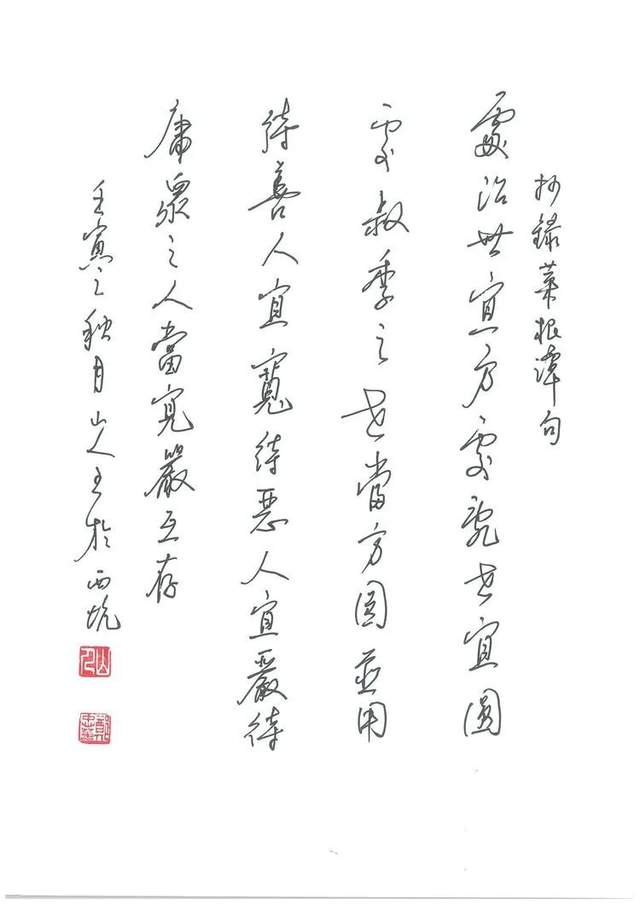 抄錄菜根譚句
處治世宜方處亂世宜圓
處叔季之世當方圓並用
待善人宜寬待惡人宜嚴待
庸眾之人當寬嚴互存
壬寅之秋月山人於西坑
山人